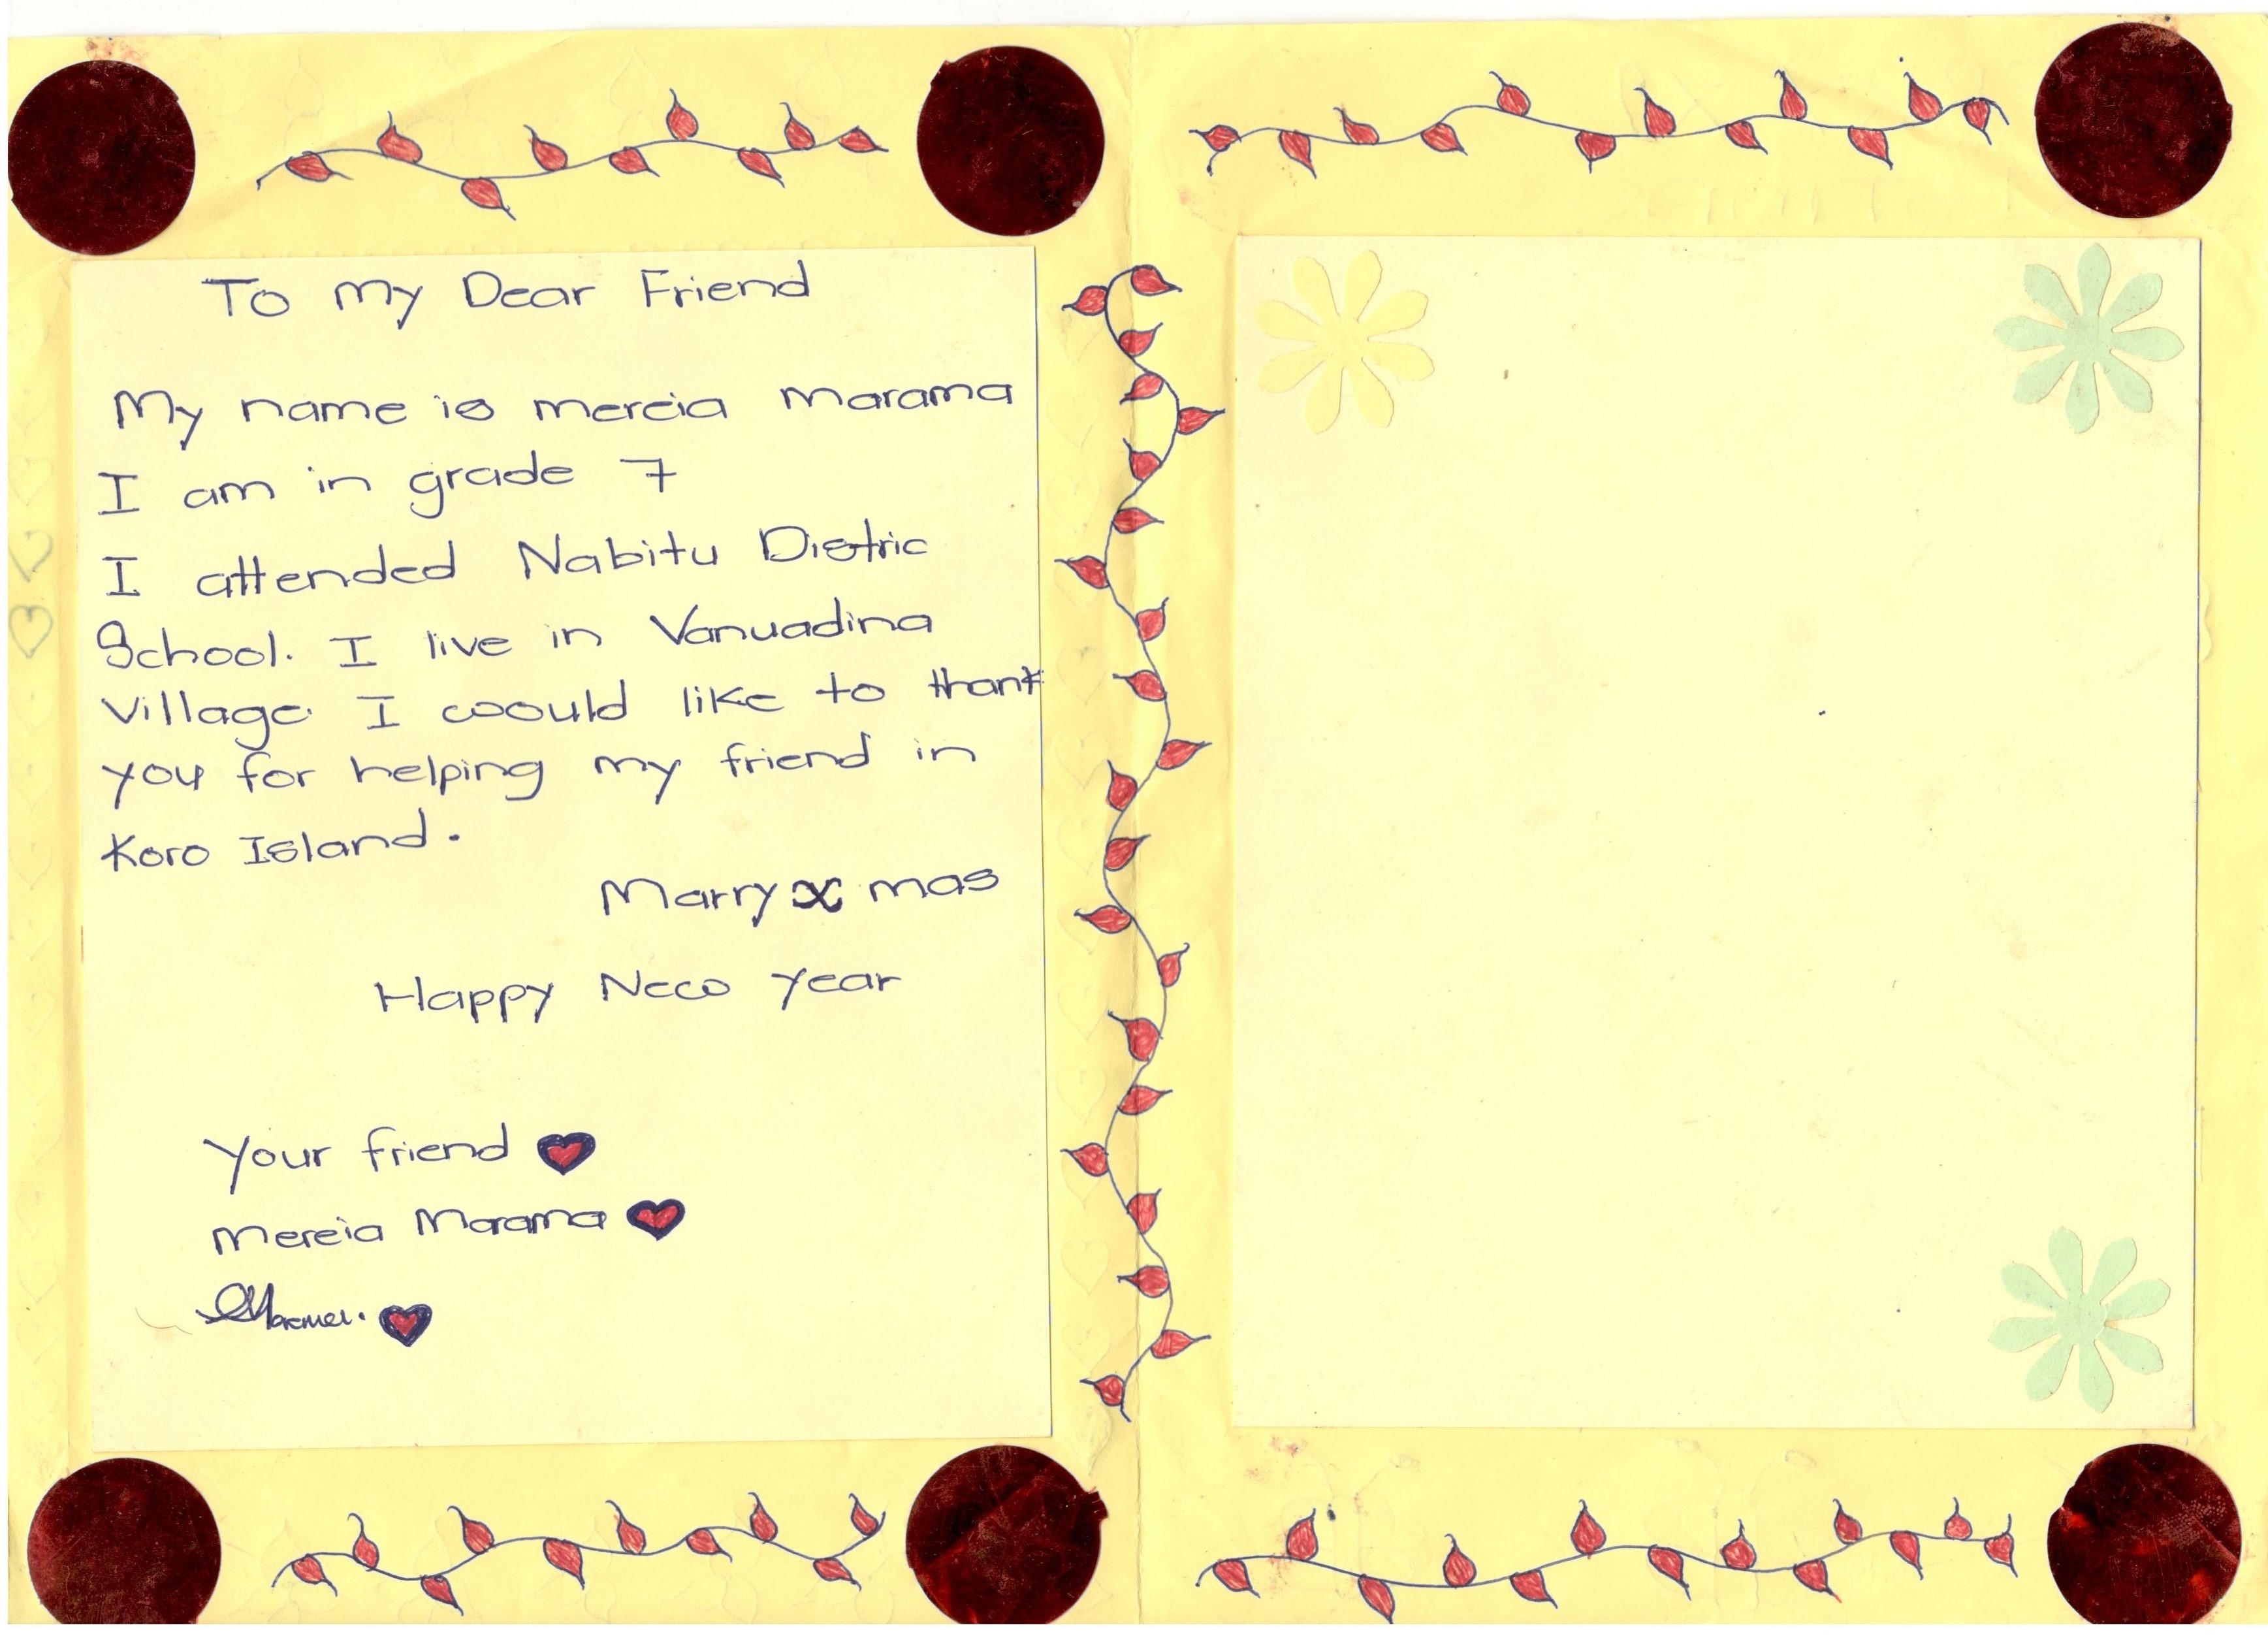 To my Dear Friend
My name is mereia marama
I am in grade 7
I attended Nabitu Distric
School. I live in Vanuadina
Village. I would like to thank
you for helping my friend in
Koro Island.
Marry x mas
Happy New year
your friend
mereia Marama